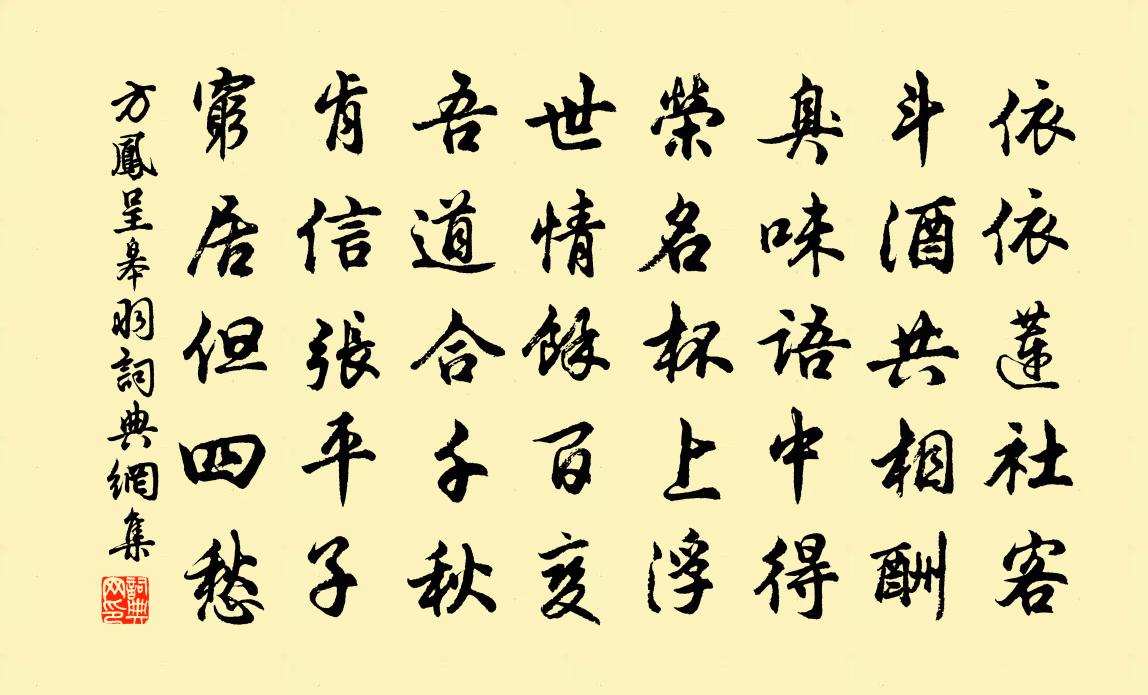 依依蓮社客
斗酒共相酬
臭味語中得
榮名杯上浮
世情餘百變
吾道合千秋
肯信張平子
窮居但四愁
方鳳呈皋羽詞典網集
詞典
网印